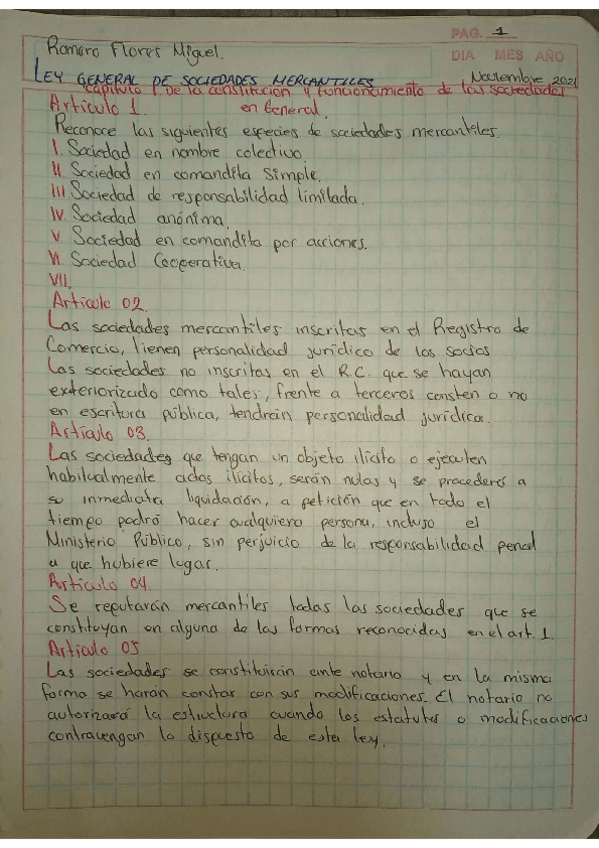 PAG. 1
Romero Flores Miguel.
DIA MES AÑO
LEY GENERAL DE SOCIEDADES MERCANTILES
Noviembre 2021
Capítulo I De la constitución y funcionamiento de las sociedades
Artículo 1. en General.
Reconoce las siguientes especies de sociedades mercantiles.
I. Sociedad en nombre colectivo.
II Sociedad en comandita Simple.
III Sociedad de responsabilidad limitada.
IV. Sociedad anónima.
V Sociedad en comandita por acciones.
VI Sociedad Cooperativa.
VII.
Artículo 02.
Las sociedades mercantiles inscritas en el Registro de
Comercio, tienen personalidad jurídico de los socios
Las sociedades no inscritas en el R.C. que se hayan
exteriorizado como tales, frente a terceros consten o no
en escritura pública, tendrein personalidad jurídica.
Artículo 03.
Las sociedades que tengan un objeto ilícito o ejecuten
habitualmente actos ilícitos, serán nulas y se procederes a
su inmediata liquidación, a petición que en todo el
tiempo podró hacer cualquiera persona, incluso el
Ministerio Público, sin perjuicio de la responsabilidad penal
a que hubiere lugar.
Artículo 04.
Se reputarán mercantiles todas las sociedades que se
constituyan en alguna de las formas reconocidas en el art. 1.
Artículo 05
Las sociedades se constituirán ante notario y en la misma
forma se harán constar con sus modificaciones. El notario no
autorizará la estructura cuando los estatutos o modificaciones
contravengan lo dispuesto de esta ley.